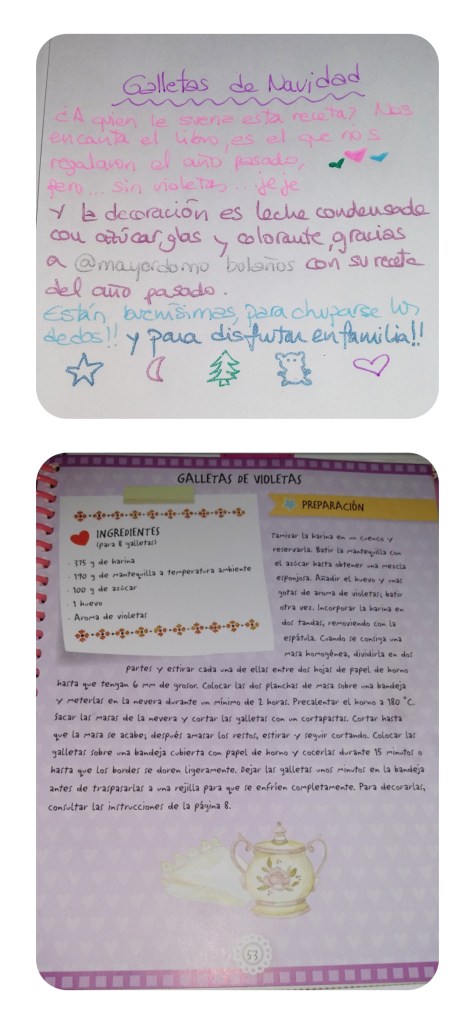 Galletas de Navidad
¿A quien le suena esta receta? Nos
encanta el libro, es el que nos
regalaron el año pasado,
pero... sin violetas... jeje
Y la decoración es leche condensada
con azúcar glas y colorante, gracias
a @mayordomo bolaños con su receta
del año pasado.
Están buenísimas, para chuparse los
dedos!! y para disfrutar en familia!!
GALLETAS DE VIOLETAS
INGREDIENTES
(para 8 galletas)
· 375 g de harina
· 190 g de mantequilla a temperatura ambiente
· 100 g de azúcar
· 1 huevo
· Aroma de violetas
PREPARACIÓN
Tamizar la harina en un cuenco y
reservarla. Batir la mantequilla con
el azúcar hasta obtener una mezcla
esponjosa. Añadir el huevo y unas
gotas de aroma de violetas; batir
otra vez. Incorporar la harina en
dos tandas, removiendo con la
espátula. Cuando se consiga una
masa homogénea, dividirla en dos
partes y estirar cada una de ellas entre dos hojas de papel de horno
hasta que tengan 6 mm de grosor. Colocar las dos planchas de masa sobre una bandeja
y meterlas en la nevera durante un mínimo de 2 horas. Precalentar el horno a 180 °C.
Sacar las masas de la nevera y cortar las galletas con un cortapastas. Cortar hasta
que la masa se acabe; después amasar los restos, estirar y seguir cortando. Colocar las
galletas sobre una bandeja cubierta con papel de horno y cocerlas durante 15 minutos o
hasta que los bordes se doren ligeramente. Dejar las galletas unos minutos en la bandeja
antes de traspasarlas a una rejilla para que se enfríen completamente. Para decorarlas,
consultar las instrucciones de la página 8.
53